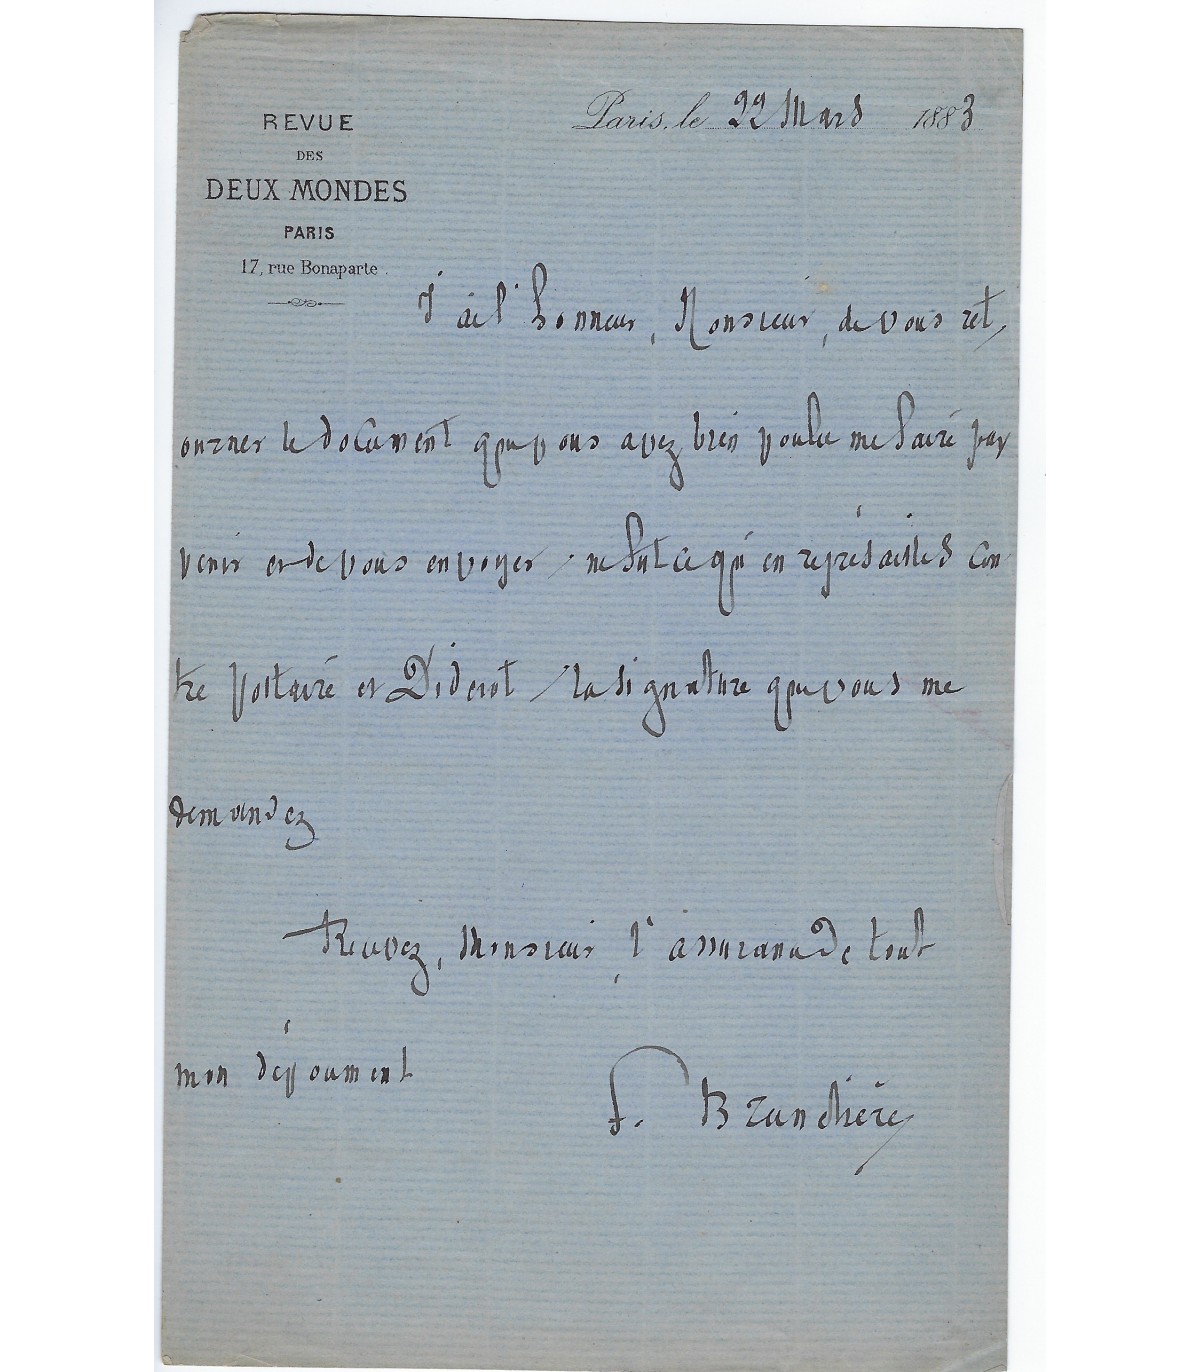 REVUE
DES
DEUX MONDES
PARIS
17, rue Bonaparte.
Paris, le 22 Mars 1883
J'ai l'honneur, Monsieur, de vous ret,
ourner le document que vous avez bien voulu me faire par
venir et de vous envoyer, ne fut ce qu'en représailles con
tre Voltaire et Diderot, la signature que vous me
demandez
Trouvez, Monsieur, l'assurance de tout
mon dévoument
F. Brunetière